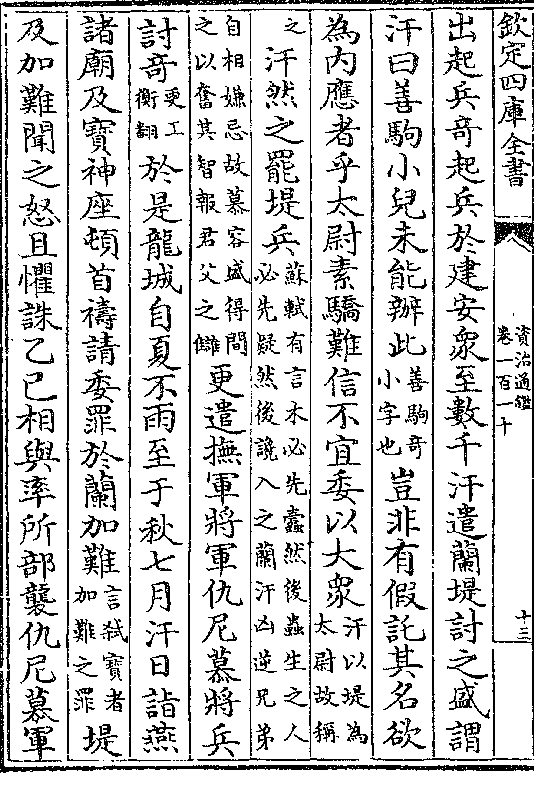 欽定四庫全書
資治通鑑
卷一百一十
十三
出起兵奇起兵於建安衆至數千汗遣蘭堤討之盛謂
汗曰善駒小兒未能辦此善駒奇小字也豈非有假託其名欲
為内應者乎太尉素驕難信不宜委以大衆汗以堤為太尉故稱
之汗然之罷堤兵蘇軾有言木必先蠹然後蟲生之人必先疑然後讒入之蘭汗凶逆兄弟
自相嫌忌故慕容盛得間之以奮其智報君父之讎更遣撫軍將軍仇尼慕將兵
討竒更工衡翻於是龍城自夏不雨至于秋七月汗日詣燕
諸廟及寶神座頓首禱請委罪於蘭加難言弑寶者加難之罪堤
及加難聞之怒且懼誅乙巳相與率所部襲仇尼慕軍